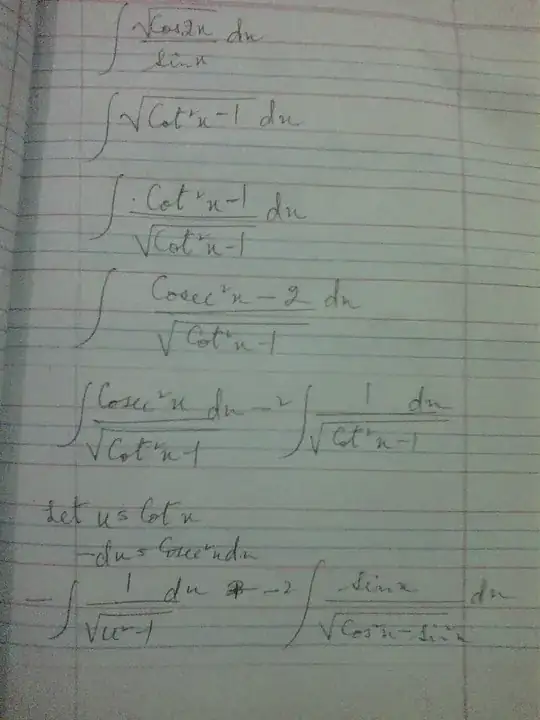 ∫ √cos2x / sinx dx
∫ √(Cot²x-1) dx
∫ Cot²x-1 / √(Cot²x-1) dx
∫ Cosec²x - 2 / √(Cot²x-1) dx
∫ Cosec²x / √(Cot²x-1) dx - 2 ∫ 1 / √(Cot²x-1) dx
Let u = Cot x
-du = Cosec²x dx
- ∫ 1 / √(u²-1) du - 2 ∫ sinx / √(Cos²x - sin²x) dx